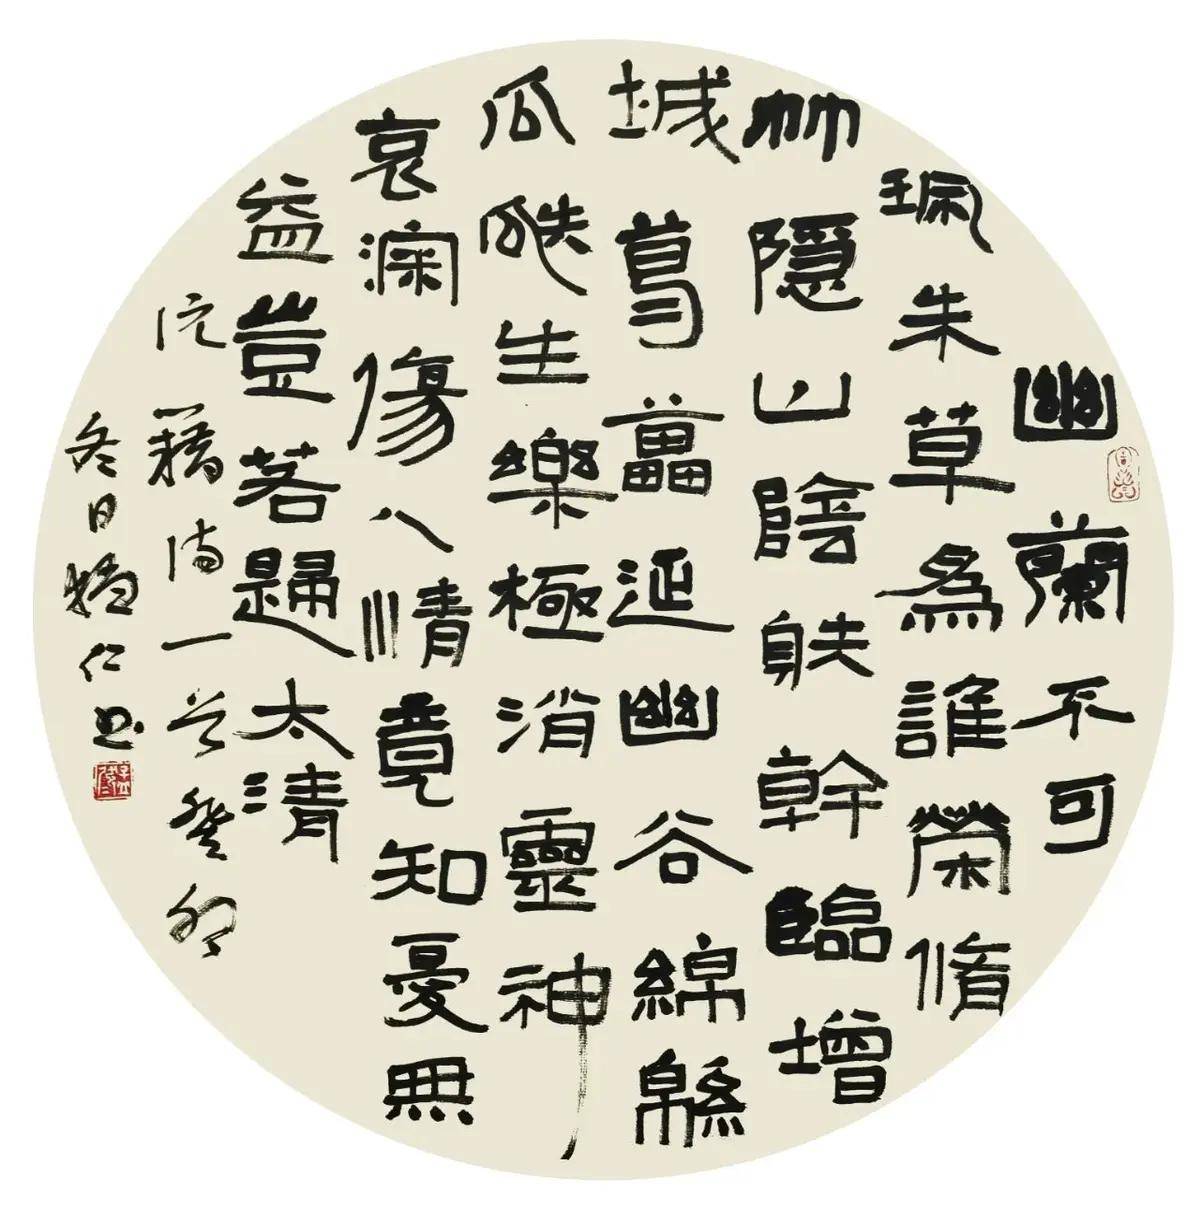 幽蘭不可
珮朱草為誰榮脩
竹隱山陰䠶幹臨增
城葛藟延幽谷綿緜
瓜瓞生樂極消靈神
哀深傷人情竟知憂無
益豈若歸太清
阮籍詩一首癸卯
冬日仁書